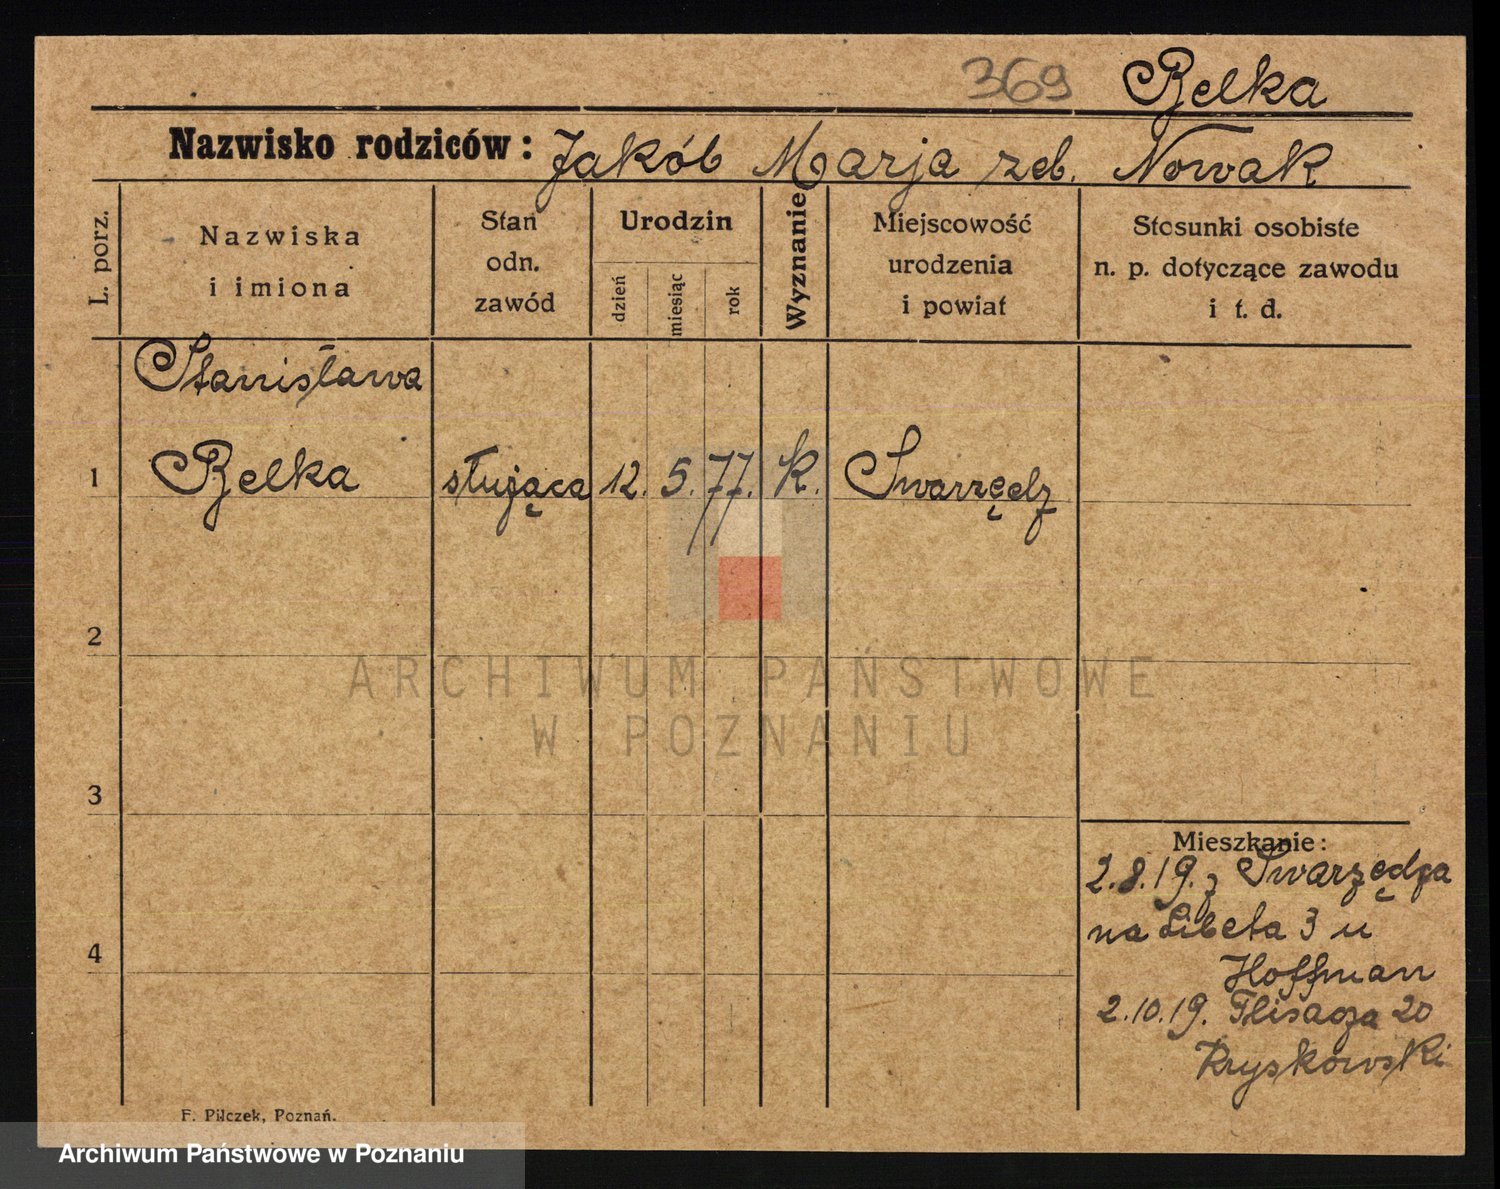 369 Belka
Nazwisko rodziców: Jakób Marja zeb. Nowak
L. porz.
Nazwiska
i imiona
Stan
odn.
zawód
Urodzin
dzień
miesiąc
rok
Wyznanie
Miejscowość
urodzenia
i powiat
Stosunki osobiste
n. p. dotyczące zawodu
i t. d.
Stanisława
1 Belka służąca 12. 5. 77. K. Swarzędz
2
ARCHIWUM PAŃSTWOWE
W POZNANIU
3
Mieszkanie:
2.8.19. z Swarzędza
na Libelta 3 u
4
Hoffman
2.10.19. Flisacza 20
Kryskowski
F. Pilczek, Poznań.
Archiwum Państwowe w Poznaniu